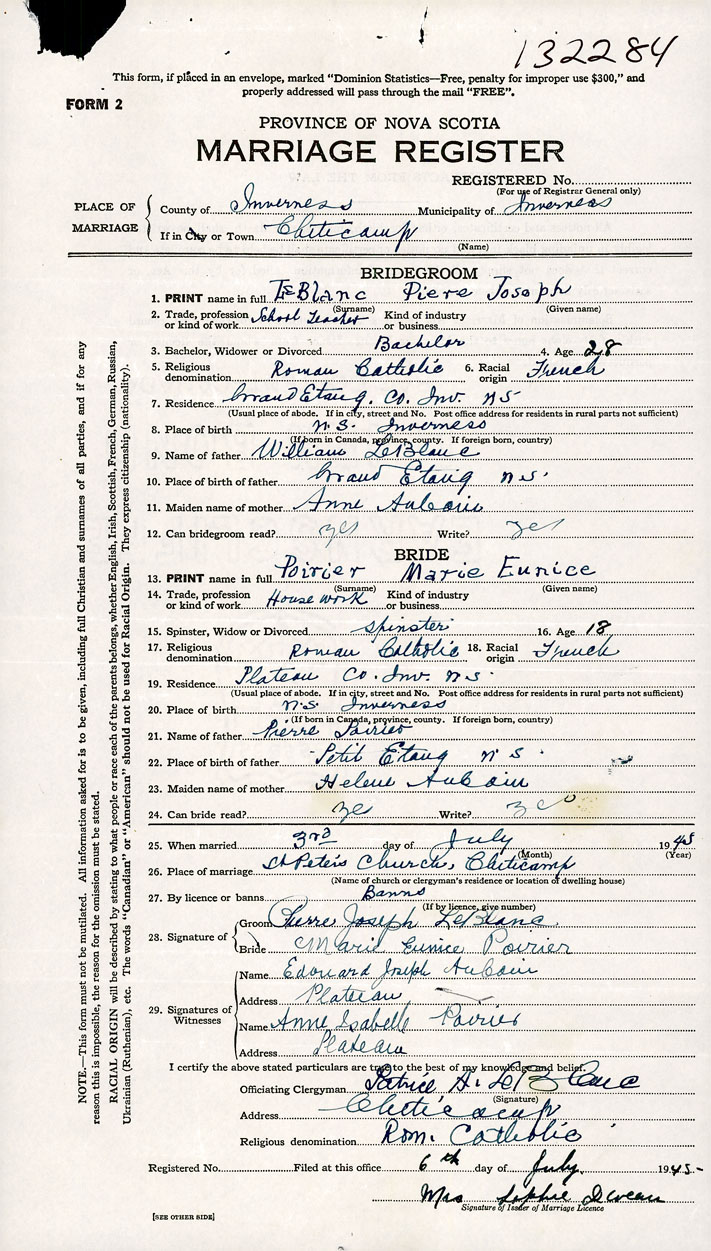 132284
This form, if placed in an envelope, marked "Dominion Statistics—Free, penalty for improper use $300," and
properly addressed will pass through the mail "FREE".
FORM 2
PROVINCE OF NOVA SCOTIA
MARRIAGE REGISTER
REGISTERED No.
(For use of Registrar General only)
PLACE OF MARRIAGE
County of Inverness Municipality of Inverness
If in City or Town Cheticamp
(Name)
BRIDEGROOM
1. PRINT name in full LeBlanc Piere Joseph
(Surname) (Given name)
2. Trade, profession or kind of work School Teacher Kind of industry or business
3. Bachelor, Widower or Divorced Bachelor 4. Age 28
5. Religious denomination Roman Catholic 6. Racial origin French
7. Residence Grand Etang. Co. Inv. N S
(Usual place of abode. If in city, street and No. Post office address for residents in rural parts not sufficient)
8. Place of birth N. S. Inverness
(If born in Canada, province, county. If foreign born, country)
9. Name of father William LeBlanc
10. Place of birth of father Grand Etang N S.
11. Maiden name of mother Anne Aucoin
12. Can bridegroom read? yes Write? yes
BRIDE
13. PRINT name in full Poirier Marie Eunice
(Surname) (Given name)
14. Trade, profession or kind of work House work Kind of industry or business
15. Spinster, Widow or Divorced spinster 16. Age 18
17. Religious denomination Roman Catholic 18. Racial origin French
19. Residence Plateau Co. Inv. N. S.
(Usual place of abode. If in city, street and No. Post office address for residents in rural parts not sufficient)
20. Place of birth N. S. Inverness
(If born in Canada, province, county. If foreign born, country)
21. Name of father Pierre Poirier
22. Place of birth of father Petit Etang N S.
23. Maiden name of mother Helene Aucoin
24. Can bride read? Write?
25. When married 3rd day of July 1945
(Month) (Year)
26. Place of marriage St Peters Church, Cheticamp
(Name of church or clergyman's residence or location of dwelling house)
27. By licence or banns Banns
(If by licence, give number)
28. Signature of
Groom Pierre Joseph LeBlanc
Bride Marie Eunice Poirier
29. Signatures of Witnesses
Name Edouard Joseph Aucoin
Address Plateau
Name Anne Isabelle Poirier
Address Plateau
I certify the above stated particulars are true to the best of my knowledge and belief.
Officiating Clergyman Patrice A. LeBlanc
(Signature)
Address Cheticamp
Religious denomination Rom. Catholic
Registered No. Filed at this office 6th day of July. 1945-
Mrs Sophie Deveau
Signature of Issuer of Marriage Licence
[SEE OTHER SIDE]
NOTE.—This form must not be mutilated. All information asked for is to be given, including full Christian and surnames of all parties, and if for any
reason this is impossible, the reason for the omission must be stated.
RACIAL ORIGIN will be described by stating to what people or race each of the parents belongs, whether English, Irish, Scottish, French, German, Russian,
Ukrainian (Ruthenian), etc. The words "Canadian" or "American" should not be used for Racial Origin. They express citizenship (nationality).